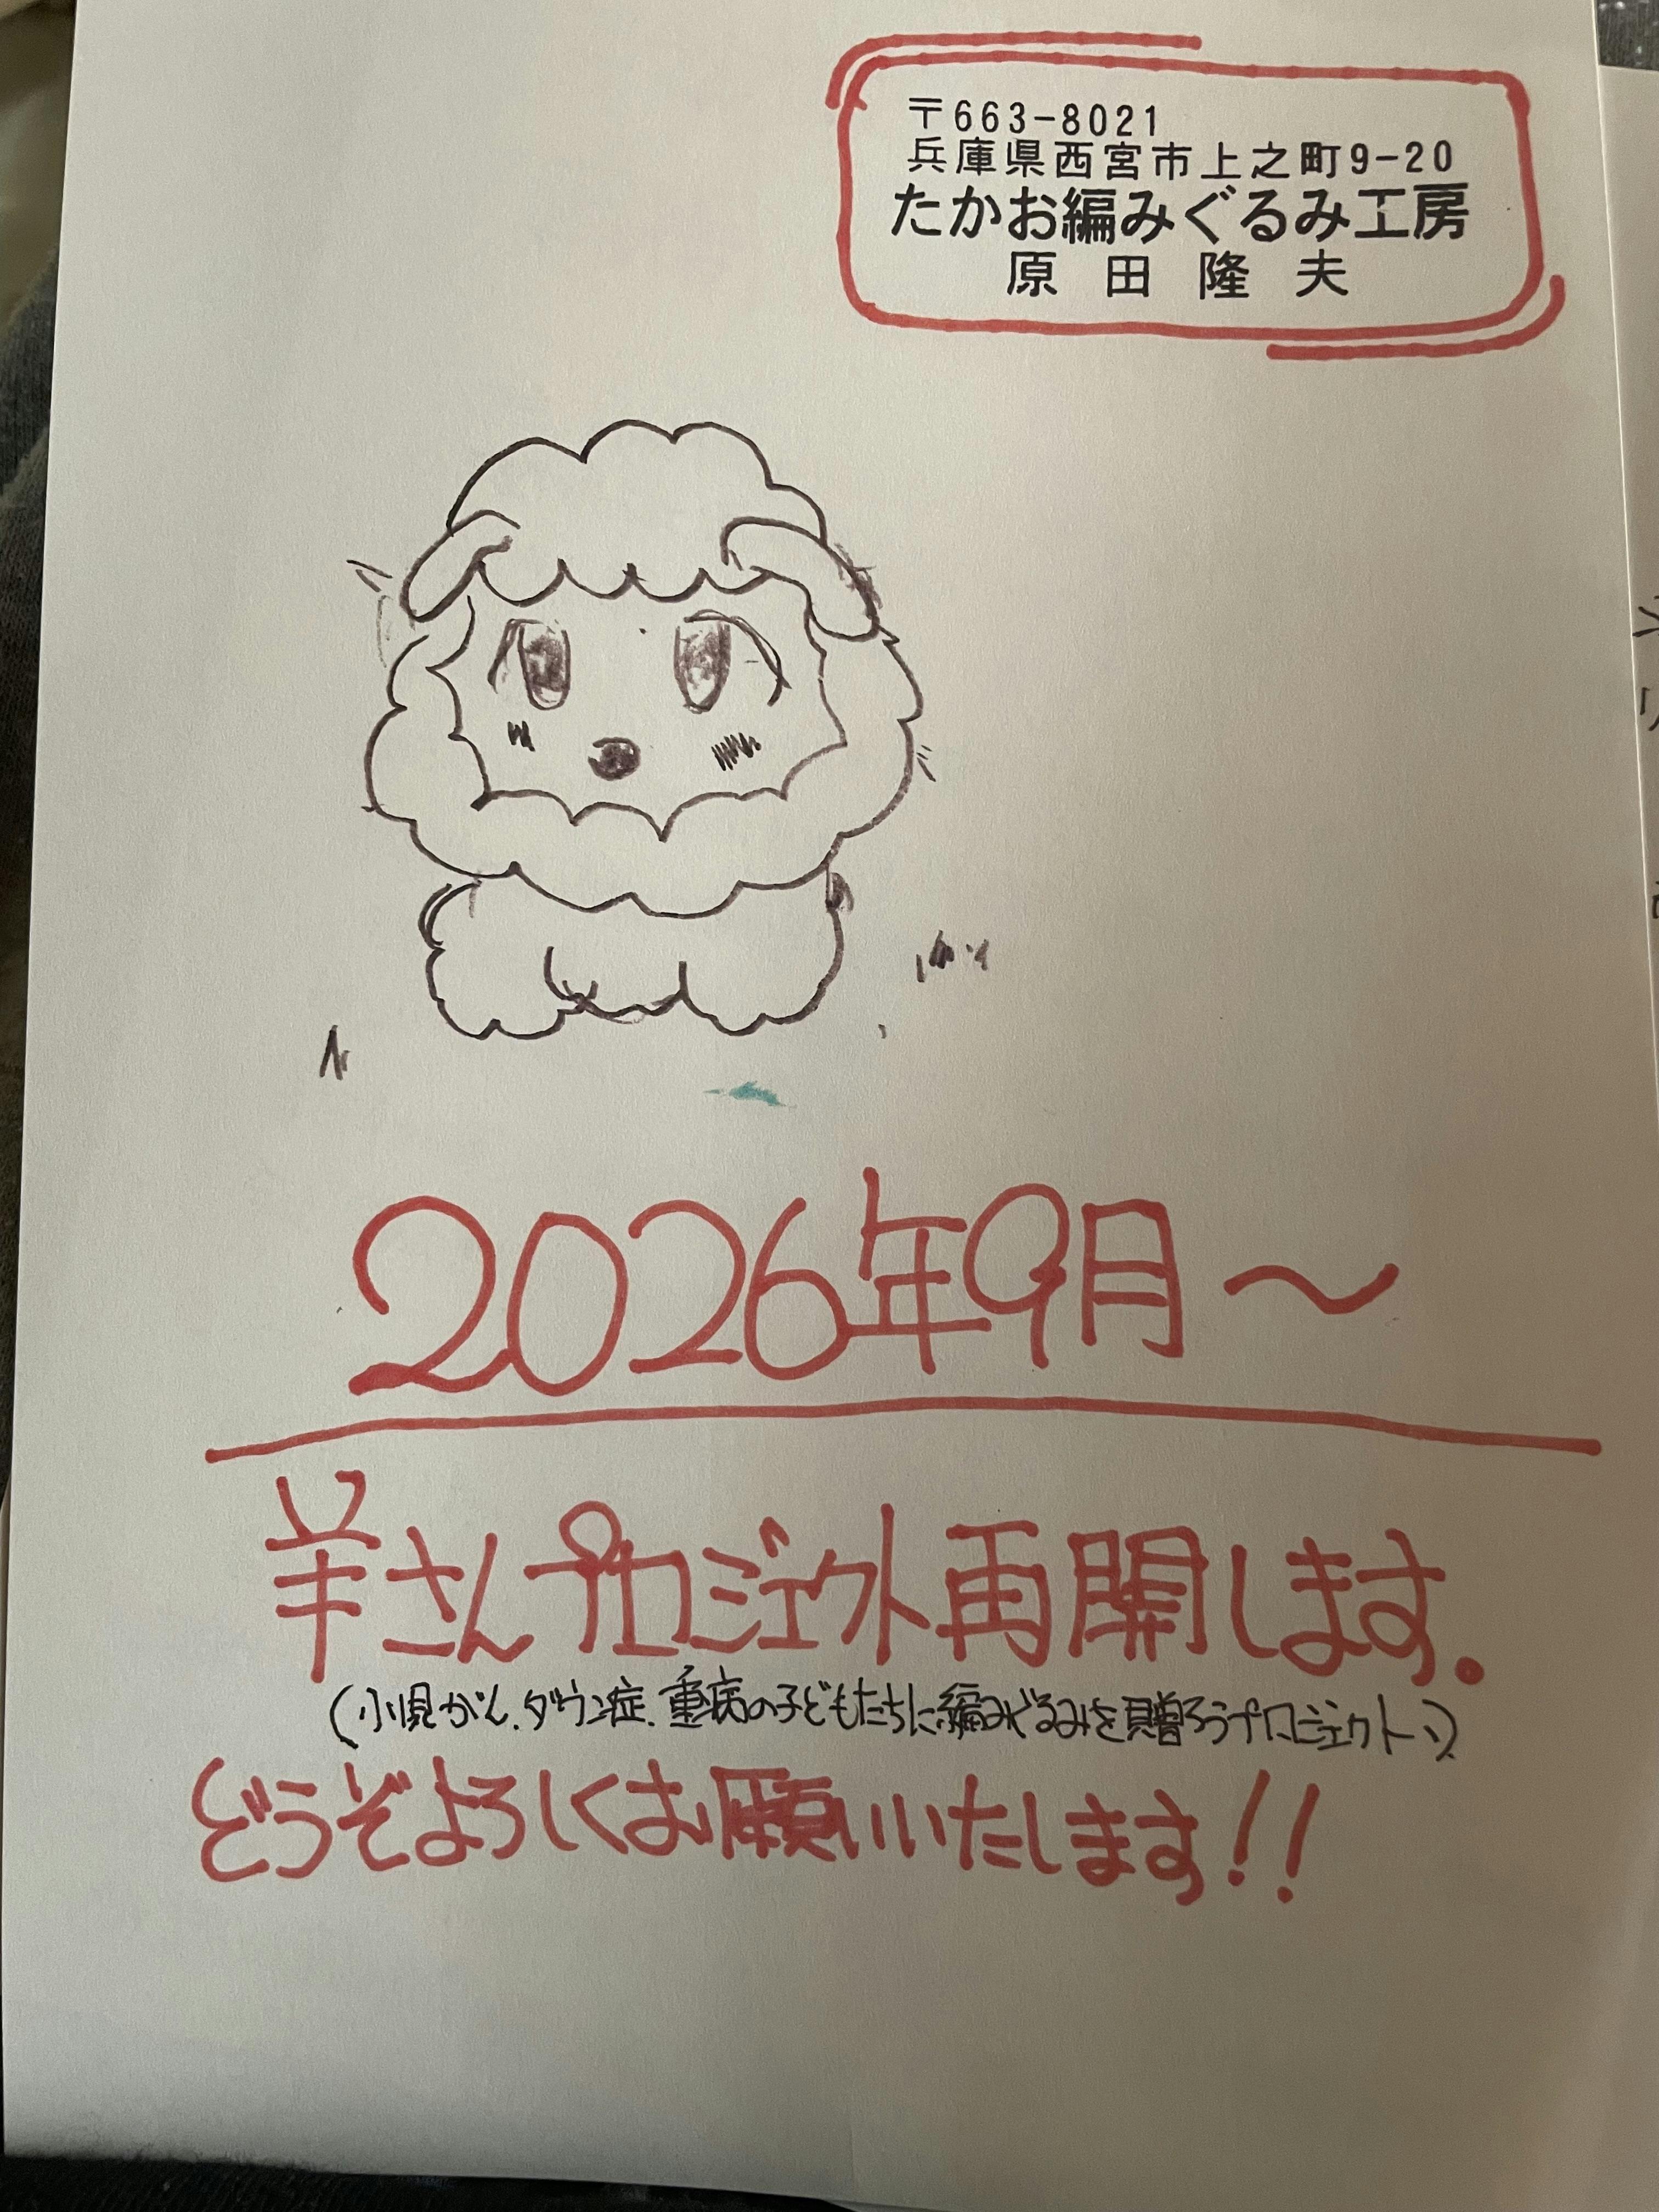 〒663-8021
兵庫県西宮市上之町9-20
たかお編みぐるみ工房
原田隆夫
2026年9月〜
羊さんプロジェクト再開します。
(小児がん、ダウン症、重病の子どもたちに編みぐるみを贈ろうプロジェクト)
どうぞよろしくお願いいたします!!